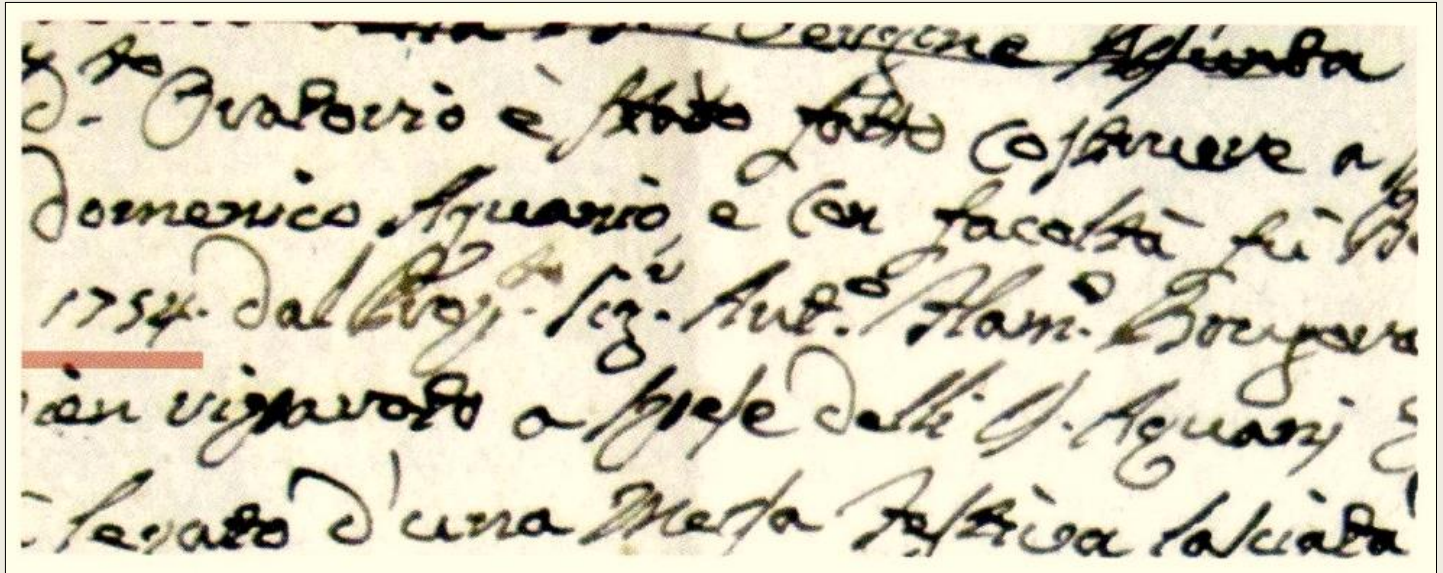 Vergine Assunta
d.to Oratorio è stato fatto costruere a
Domenico Aquario, e con facoltà fù
1754. dal Sig.r Ant.o Flam.o
vien riparato a spese delli S. Aquarj
legato d'una Messa festiva lasciata